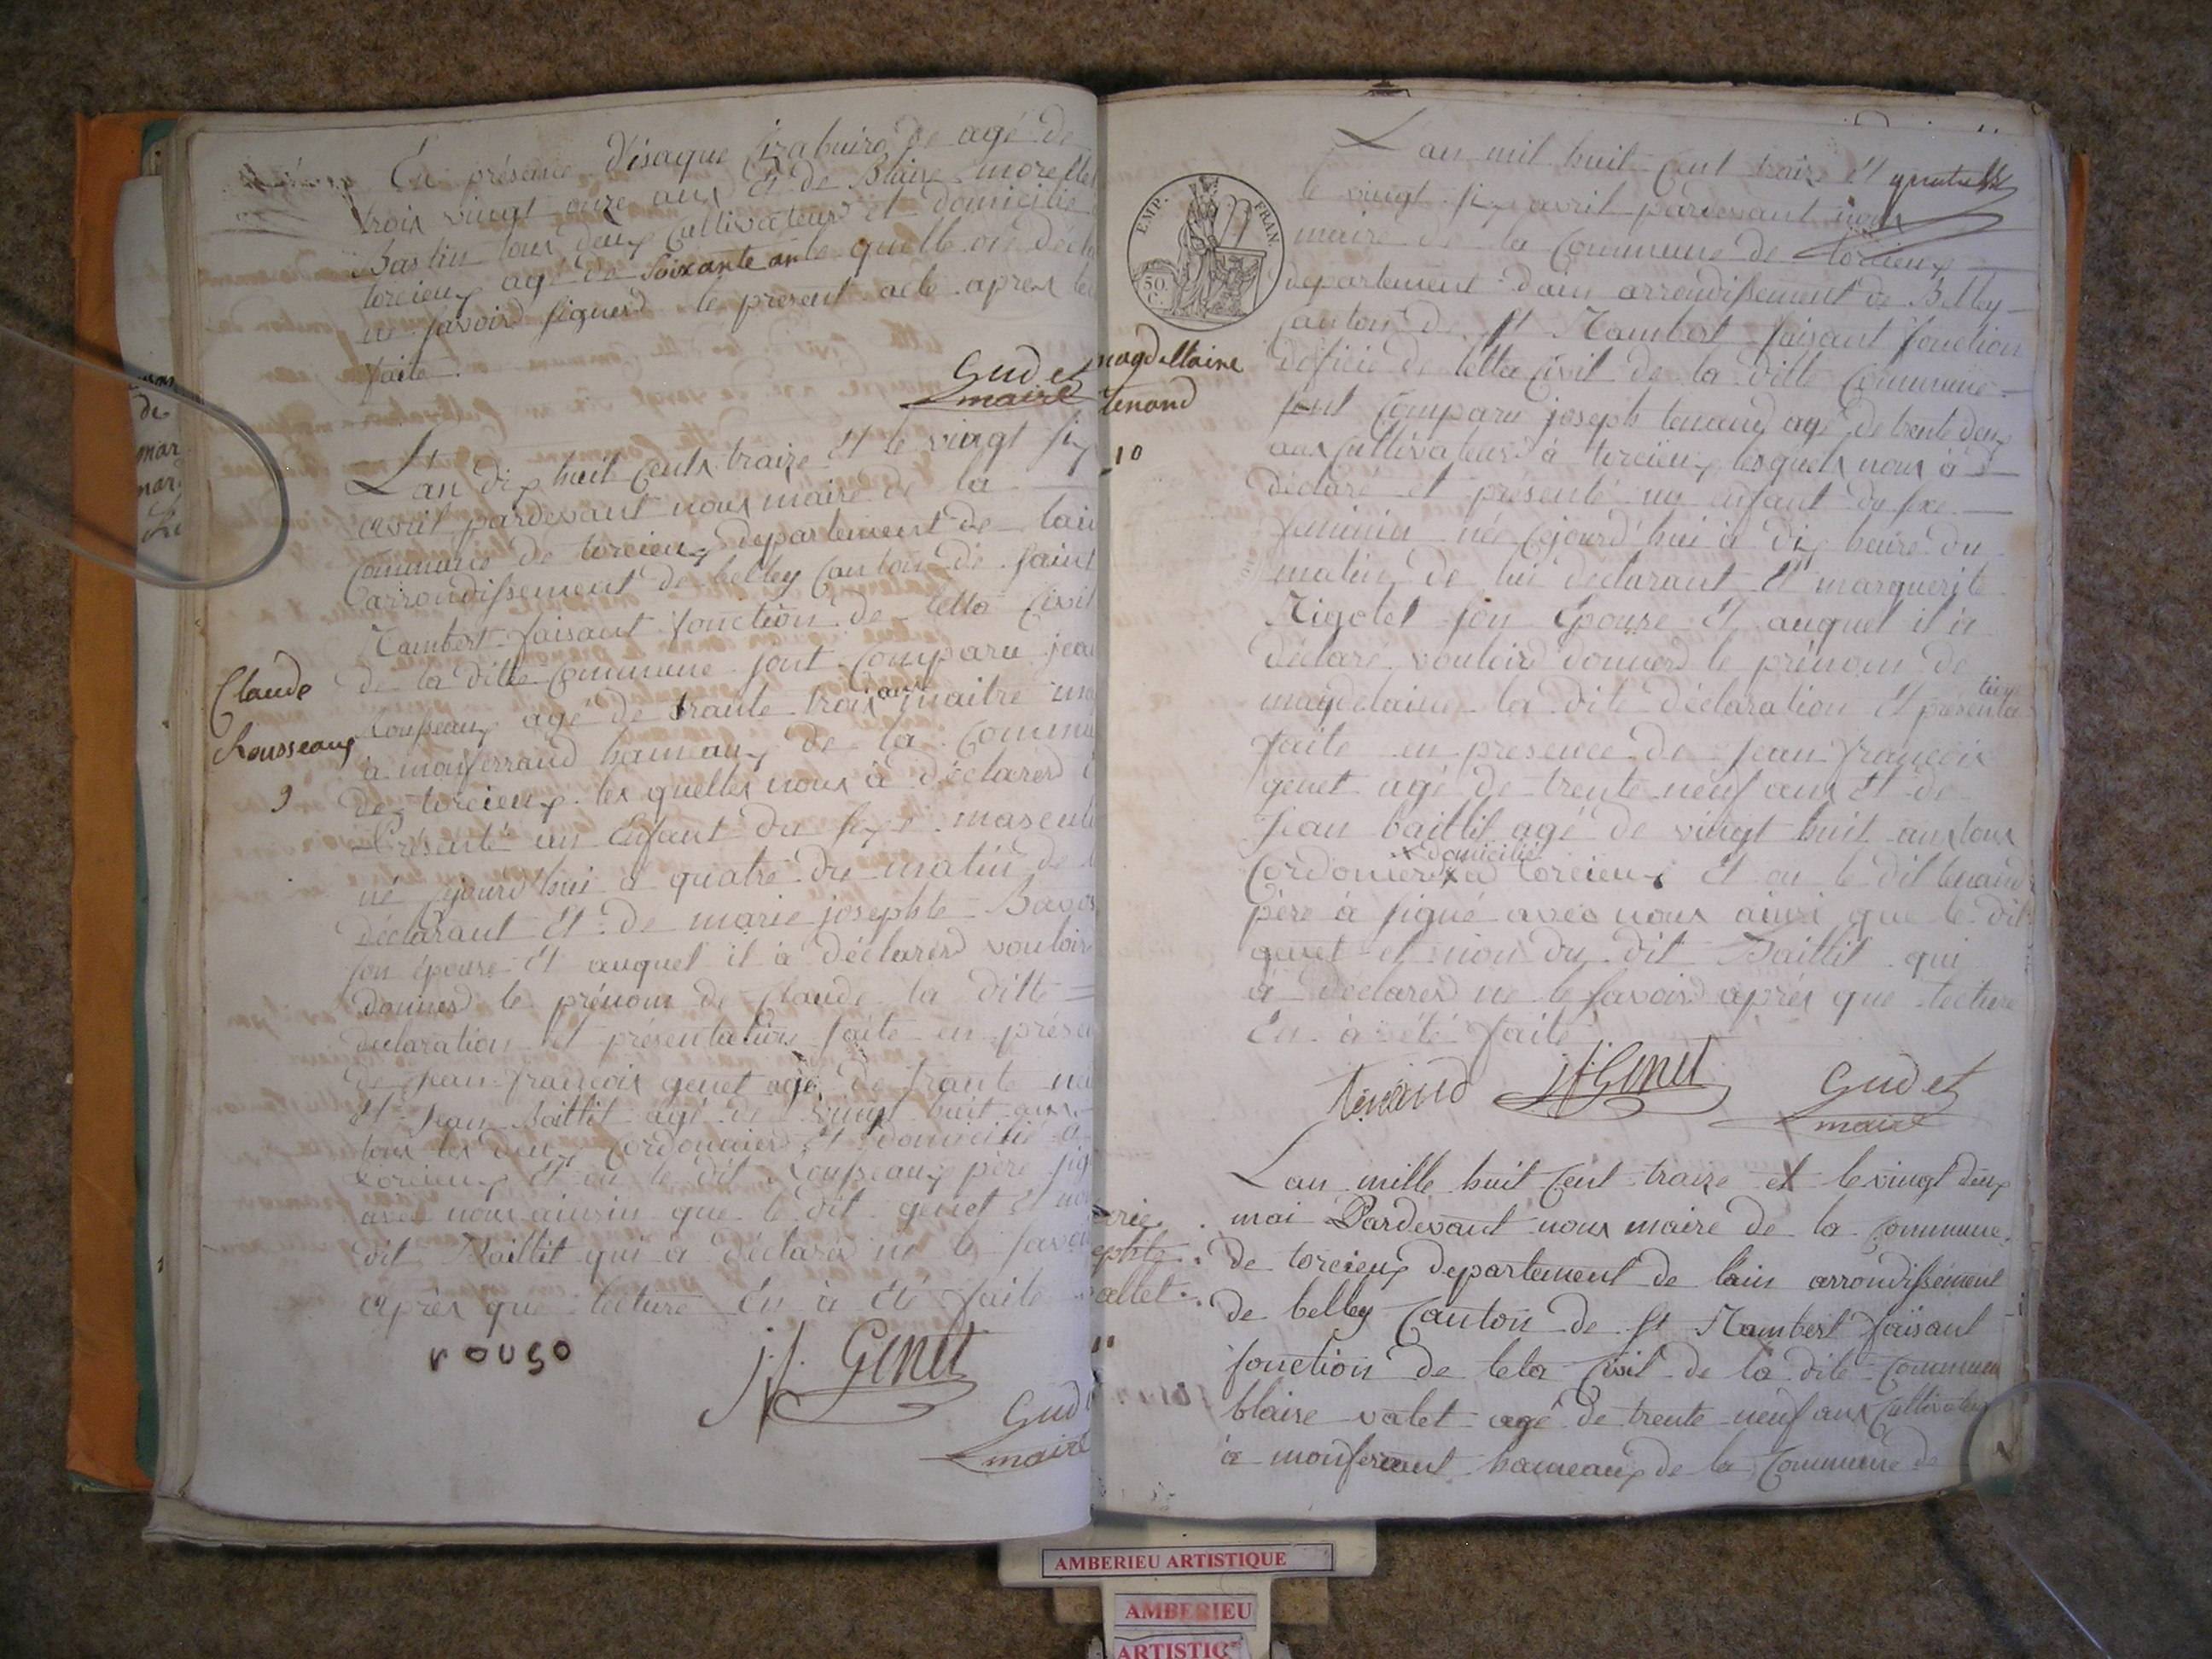 En présence D'isaque agé de
trois vingt onze ans Et de Blaise morellet
Bastin tous deux Cultivateurs Et domicilié
torcieux agé de soixante an le quelle on décla
ne savoir signerd le présent acte après lec
faite.
Gudet
maire
L'an dix huit Cents traize Et le vingt six
avril pardevant nous maire de la
Commune de torcieux département de lain
arrondissement de belley Canton de saint
Rambert faisant fonction de letta Civil
Claude
de la ditte Commune sont Comparu jean
Rousseaux
Rousseaux agé de traute trois ans maitre ma
à monferrand hameaux de la Commu
9
de torcieux les quelles nous à déclarerd
Présenté un Enfant du sexe masculi
né cejourd'hui à quatre du matin de
déclarant Et de marie josephte Bavos
son épouse Et auquel il à déclarerd vouloir
donnerd le prénom de Claude la ditte
déclaration et présentation faite en présen
de jean françois genet agé de traute neu
Et jean Baillit agé de vingt huit ans
tous les deux Cordonniers Et domicilié à
torcieux Et on le dit Rousseaux père sig
avec nous ainsin que le dit genet Et no
dit Baillit qui à déclarer ne le savoi
après que lecture En à Eté faite
rouso
j.f. Genet
Gude
maire
de
mar
EMP. FRAN.
50. C.
L'an mil huit Cent traize Et
le vingt six avril pardevant nous
maire de la Commune de torcieux
département dain arrondissement de Belley
Canton de St Rambert faisant fonction
magdellaine
doficié de letta Civil de la ditte Commune
tenand
sont Comparu joseph tenand agé de trente deux
10
ans Cultivateurs à torcieux lesquels nous à
déclaré et présenté un enfant du sexe
feminin né cejourd'hui à dix heure du
matin de lui déclarant Et marguerite
Rigolet son Epouse Et auquel il à
déclaré vouloird donnerd le prénom de
magdelaine la dite déclaration Et présenta
tion
faite en présence de jean françois
genet agé de trente neuf ans Et de
jean baillit agé de vingt huit ans tous
x domicilié
Cordoniers x à torcieux Et on le dit tenand
père à signé avec nous ainsi que le dit
genet et non du dit Baillit qui
à déclarer ne le savoird après que lecture
En à été faite
tenand j.f. Genet Gudet
maire
L'an mille huit Cent traize et le vingt deux
mai Pardevant nous maire de la Commune
de torcieux departement de lain arrondissement
allet
de belley Canton de St Rambert faisant
fonction de leta Civil de la dite Commune
blaise valet agé de trente neuf ans Cultivateur
à monferrant hameaux de la Commune de
AMBERIEU ARTISTIQUE
AMBERIEU
ARTISTIQ